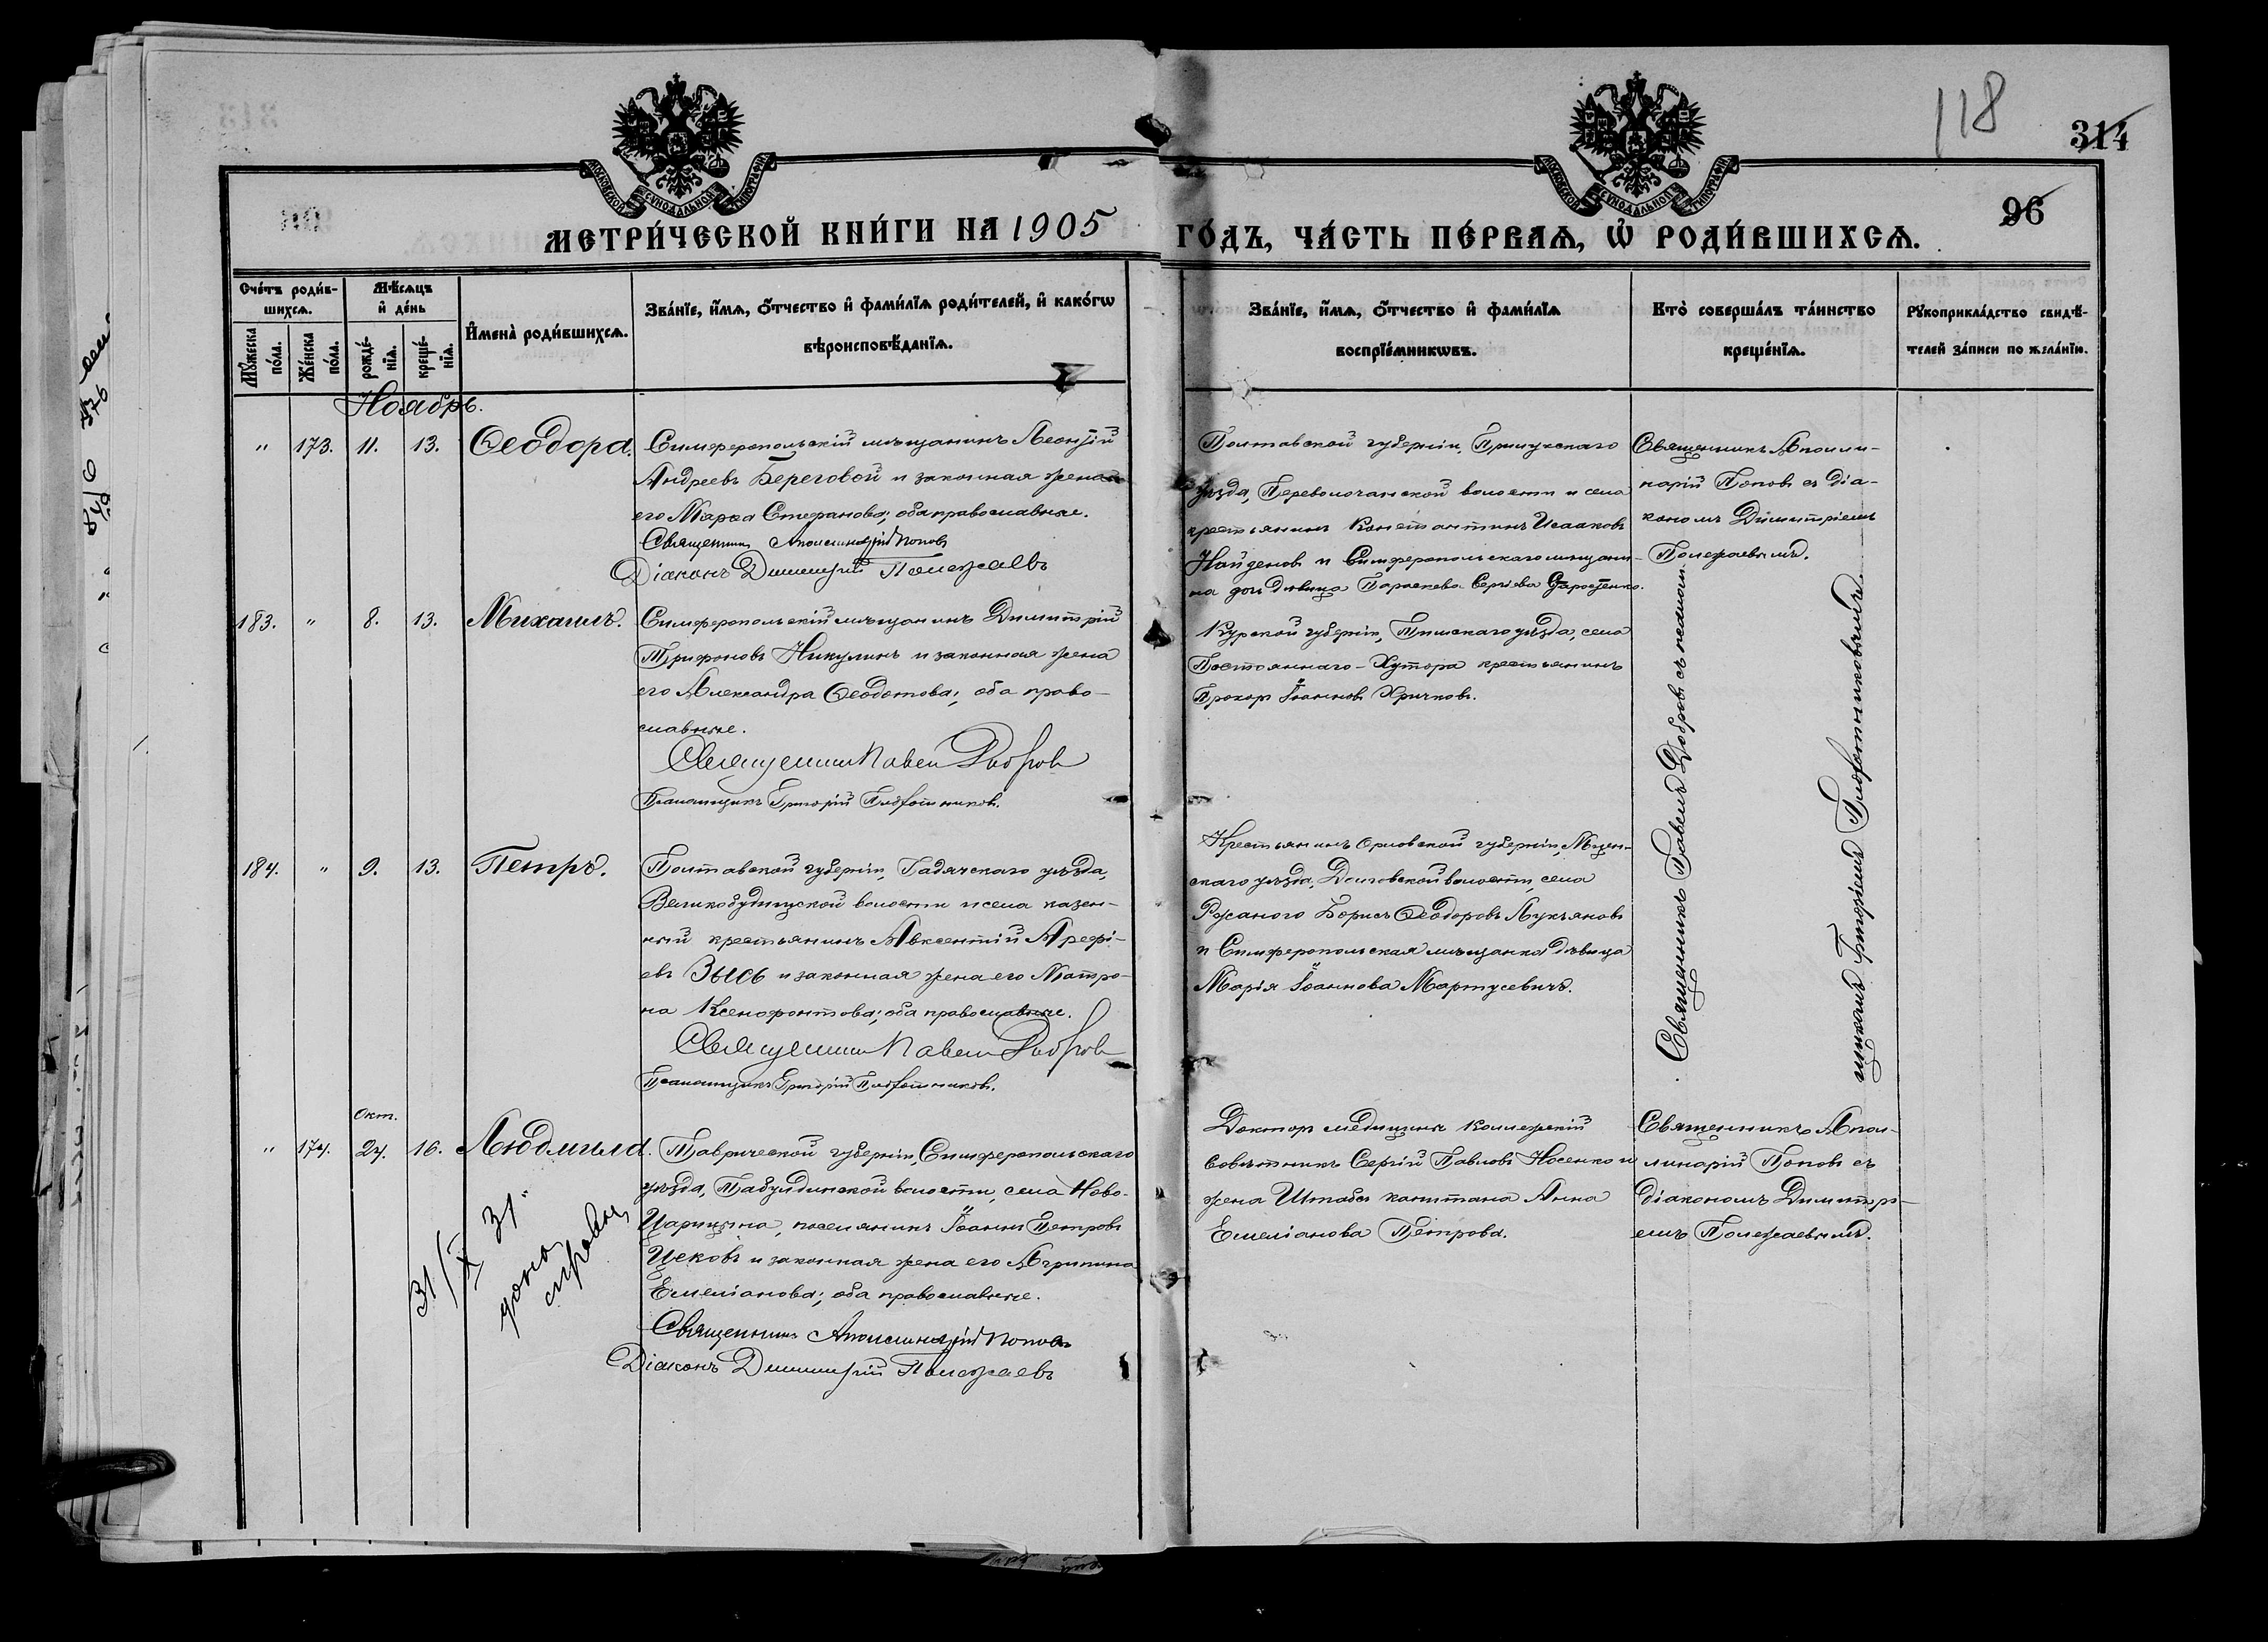 118
314
96
МОСКОВСКОЙ СѴНОДАЛЬНОЙ ТИПОГРАФІИ
МОСКОВСКОЙ СѴНОДАЛЬНОЙ ТИПОГРАФІИ
МЕТРИ́ЧЕСКОЙ КНИ́ГИ НА 1905 ГО́ДЪ, ЧА́СТЬ ПЕ́РВАѦ, Ѡ҆ РОДИ́ВШИХСѦ.
Сче́тъ роди́в-
шихсѧ.
Мꙋ́жеска по́ла.
Же́нска по́ла.
Мѣ́сѧцъ
и҆ де́нь
рожде́-
нїѧ.
креще́-
нїѧ.
И҆мена̀ роди́вшихсѧ.
Зва́нїе, и҆́мѧ, ѻ҆́тчество и҆ фами́лїѧ роди́телей, и҆ како́гѡ
вѣроисповѣ́данїѧ.
Зва́нїе, и҆́мѧ, ѻ҆́тчество и҆ фами́лїѧ
воспрїе́мникѡвъ.
Кто̀ соверша́лъ та́инство
креще́нїѧ.
Рꙋкоприкла́дство свидѣ́-
телей за́писи по жела́нїю.
Ноябрь.
" 173. 11. 13. Ѳеодора.
Симферопольскій мѣщанинъ Леонтій
Андреевъ Береговой и законная жена
его Марѳа Стефанова; оба православные.
Священникъ Аполлинарій Поповъ
Діаконъ Димитрій Полежаевъ
Полтавской губерніи, Прилукскаго
уѣзда, Переволочанской волости и села
крестьянинъ Константинъ Исааковъ
Найденовъ и Симферопольскаго мѣщани-
на дочь дѣвица Параскева Сергіева Старостенко.
Священникъ Аполли-
нарій Поповъ съ діа-
кономъ Димитріемъ
Полежаевымъ.
183. " 8. 13. Михаилъ.
Симферопольскій мѣщанинъ Димитрій
Трифоновъ Никулинъ и законная жена
его Александра Ѳеодотова; оба право-
славные.
Священникъ Павелъ Добровъ
Псаломщикъ Григорій Плотниковъ.
Курской губерніи, Тимскаго уѣзда, села
Постояннаго-Хутора крестьянинъ
Прохоръ Іоанновъ Хричковъ.
Священникъ Павелъ Добровъ съ псалом-
щикомъ Григоріемъ
184. " 9. 13. Петръ.
Полтавской губерніи, Гадячскаго уѣзда,
Великобудищской волости и села казен-
ный крестьянинъ Авксентій Арефі-
евъ Зысь и законная жена его Матро-
на Ксенофонтова; оба православные.
Священникъ Павелъ Добровъ
Псаломщикъ Григорій Плотниковъ.
Крестьянинъ Орловской губерніи, Мцен-
скаго уѣзда, Долговской волости, села
Ржаного Борисъ Ѳеодоровъ Лукьяновъ
и Симферопольская мѣщанка дѣвица
Марія Іоаннова Мартусевичъ.
Окт.
" 174. 24. 16. Людмила.
Таврической губерніи, Симферопольскаго
уѣзда, Табулдинской волости, села Ново-
Царицына, поселянинъ Іоаннъ Петровъ
Цековъ и законная жена его Агрипина
Емеліанова; оба православные.
Священникъ Аполлинарій Поповъ
Діаконъ Димитрій Полежаевъ
Докторъ медицины Коллежскій
Совѣтникъ Сергій Павловъ Носенко и
жена Штабсъ капитана Анна
Емеліанова Петрова.
Священникъ Апол-
линарій Поповъ съ
діакономъ Димитрі-
емъ Полежаевымъ.
31/X 31.